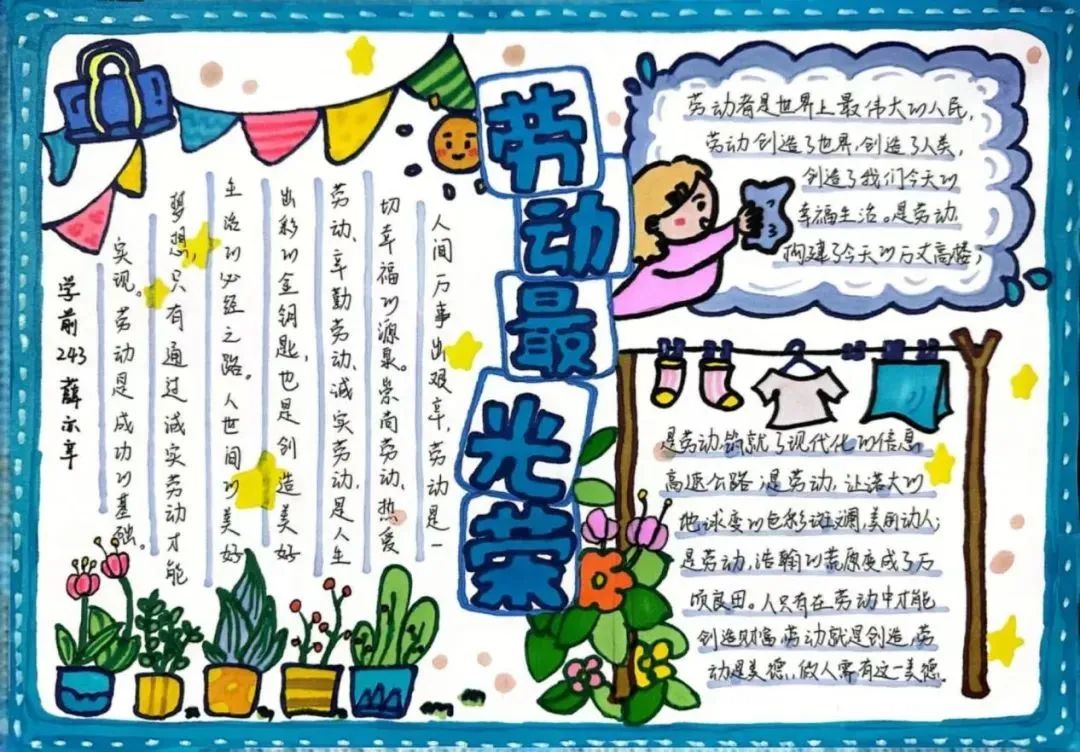 劳动最光荣
劳动者是世界上最伟大的人民,
劳动创造了世界,创造了人类,
创造了我们今天的
幸福生活。是劳动,
构建了今天的万丈高楼;
是劳动,铸就了现代化的信息
高速公路;是劳动,让诺大的
地球变的色彩斑斓,美丽动人;
是劳动,浩瀚的荒原变成了万
顷良田。人只有在劳动中才能
创造财富,劳动就是创造,劳
动是美德,做人需有这一美德.
人间万事出艰辛,劳动是一
切幸福的源泉。崇尚劳动、热爱
劳动、辛勤劳动、诚实劳动,是人生
出彩的金钥匙,也是创造美好
生活的必经之路。人世间的美好
梦想,只有通过诚实劳动才能
实现。劳动是成功的基础。
学前243 薛示辛